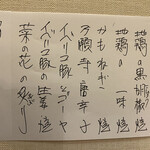 地鶏の黒胡椒焼
地鶏の一味焼
かもねぎ焼
万願寺唐辛子
イベリコ豚ジューシー
イベリコ豚の生姜焼
菜の花の